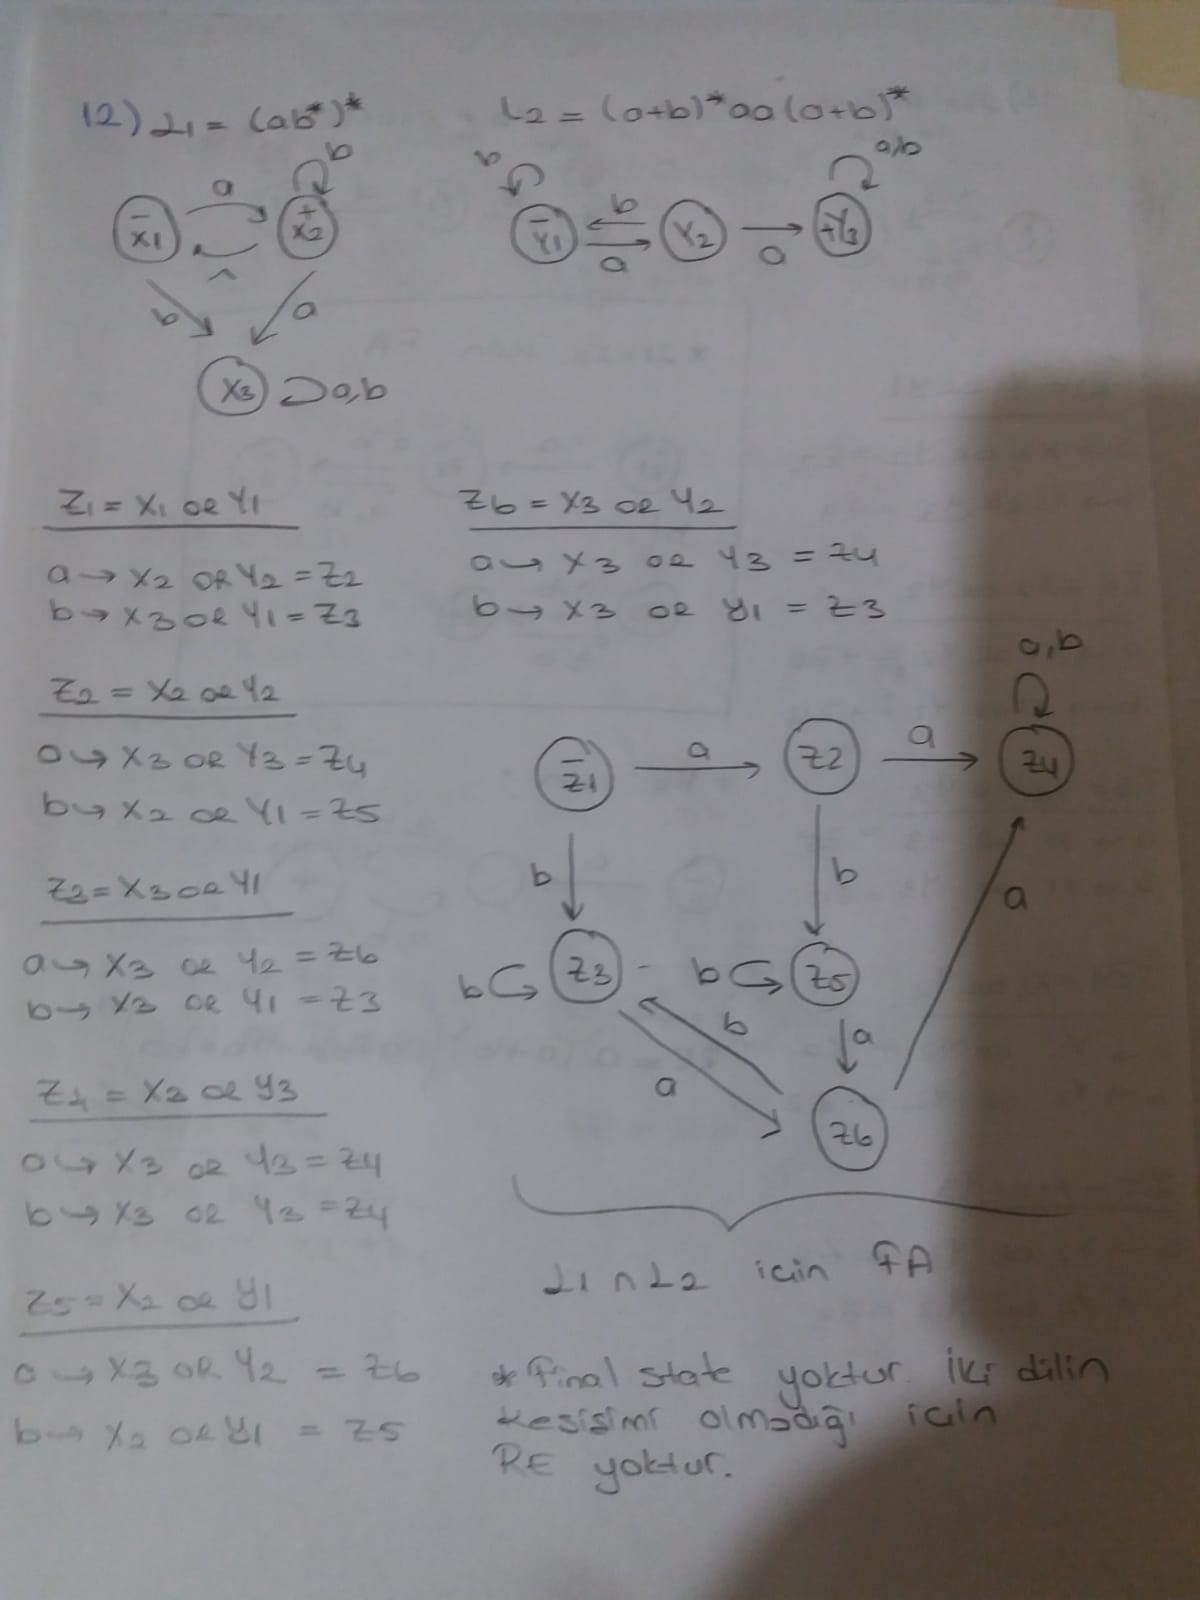 12) L1 = (ab*)*
L2 = (a+b)*aa(a+b)*
b
a
- x1
+ x2
^
b
a
x3
a,b
b
a,b
- Y1
b
a
Y2
a
+Y3
Z1 = X1 OR Y1
a → X2 OR Y2 = Z2
b → X3 OR Y1 = Z3
Z2 = X2 OR Y2
a → X3 OR Y3 = Z4
b → X2 OR Y1 = Z5
Z3 = X3 OR Y1
a → X3 OR Y2 = Z6
b → X3 OR Y1 = Z3
Z4 = X3 OR Y3
a → X3 OR Y3 = Z4
b → X3 OR Y3 = Z4
Z5 = X2 OR Y1
a → X3 OR Y2 = Z6
b → X2 OR Y1 = Z5
Z6 = X3 OR Y2
a → X3 OR Y3 = Z4
b → X3 OR Y1 = Z3
a,b
- Z1
a
Z2
a
Z4
b
b
a
b
Z3
b
Z5
b
a
a
Z6
L1 ∩ L2 için FA
* Final state yoktur. İki dilin
kesişimi olmadığı için
RE yoktur.